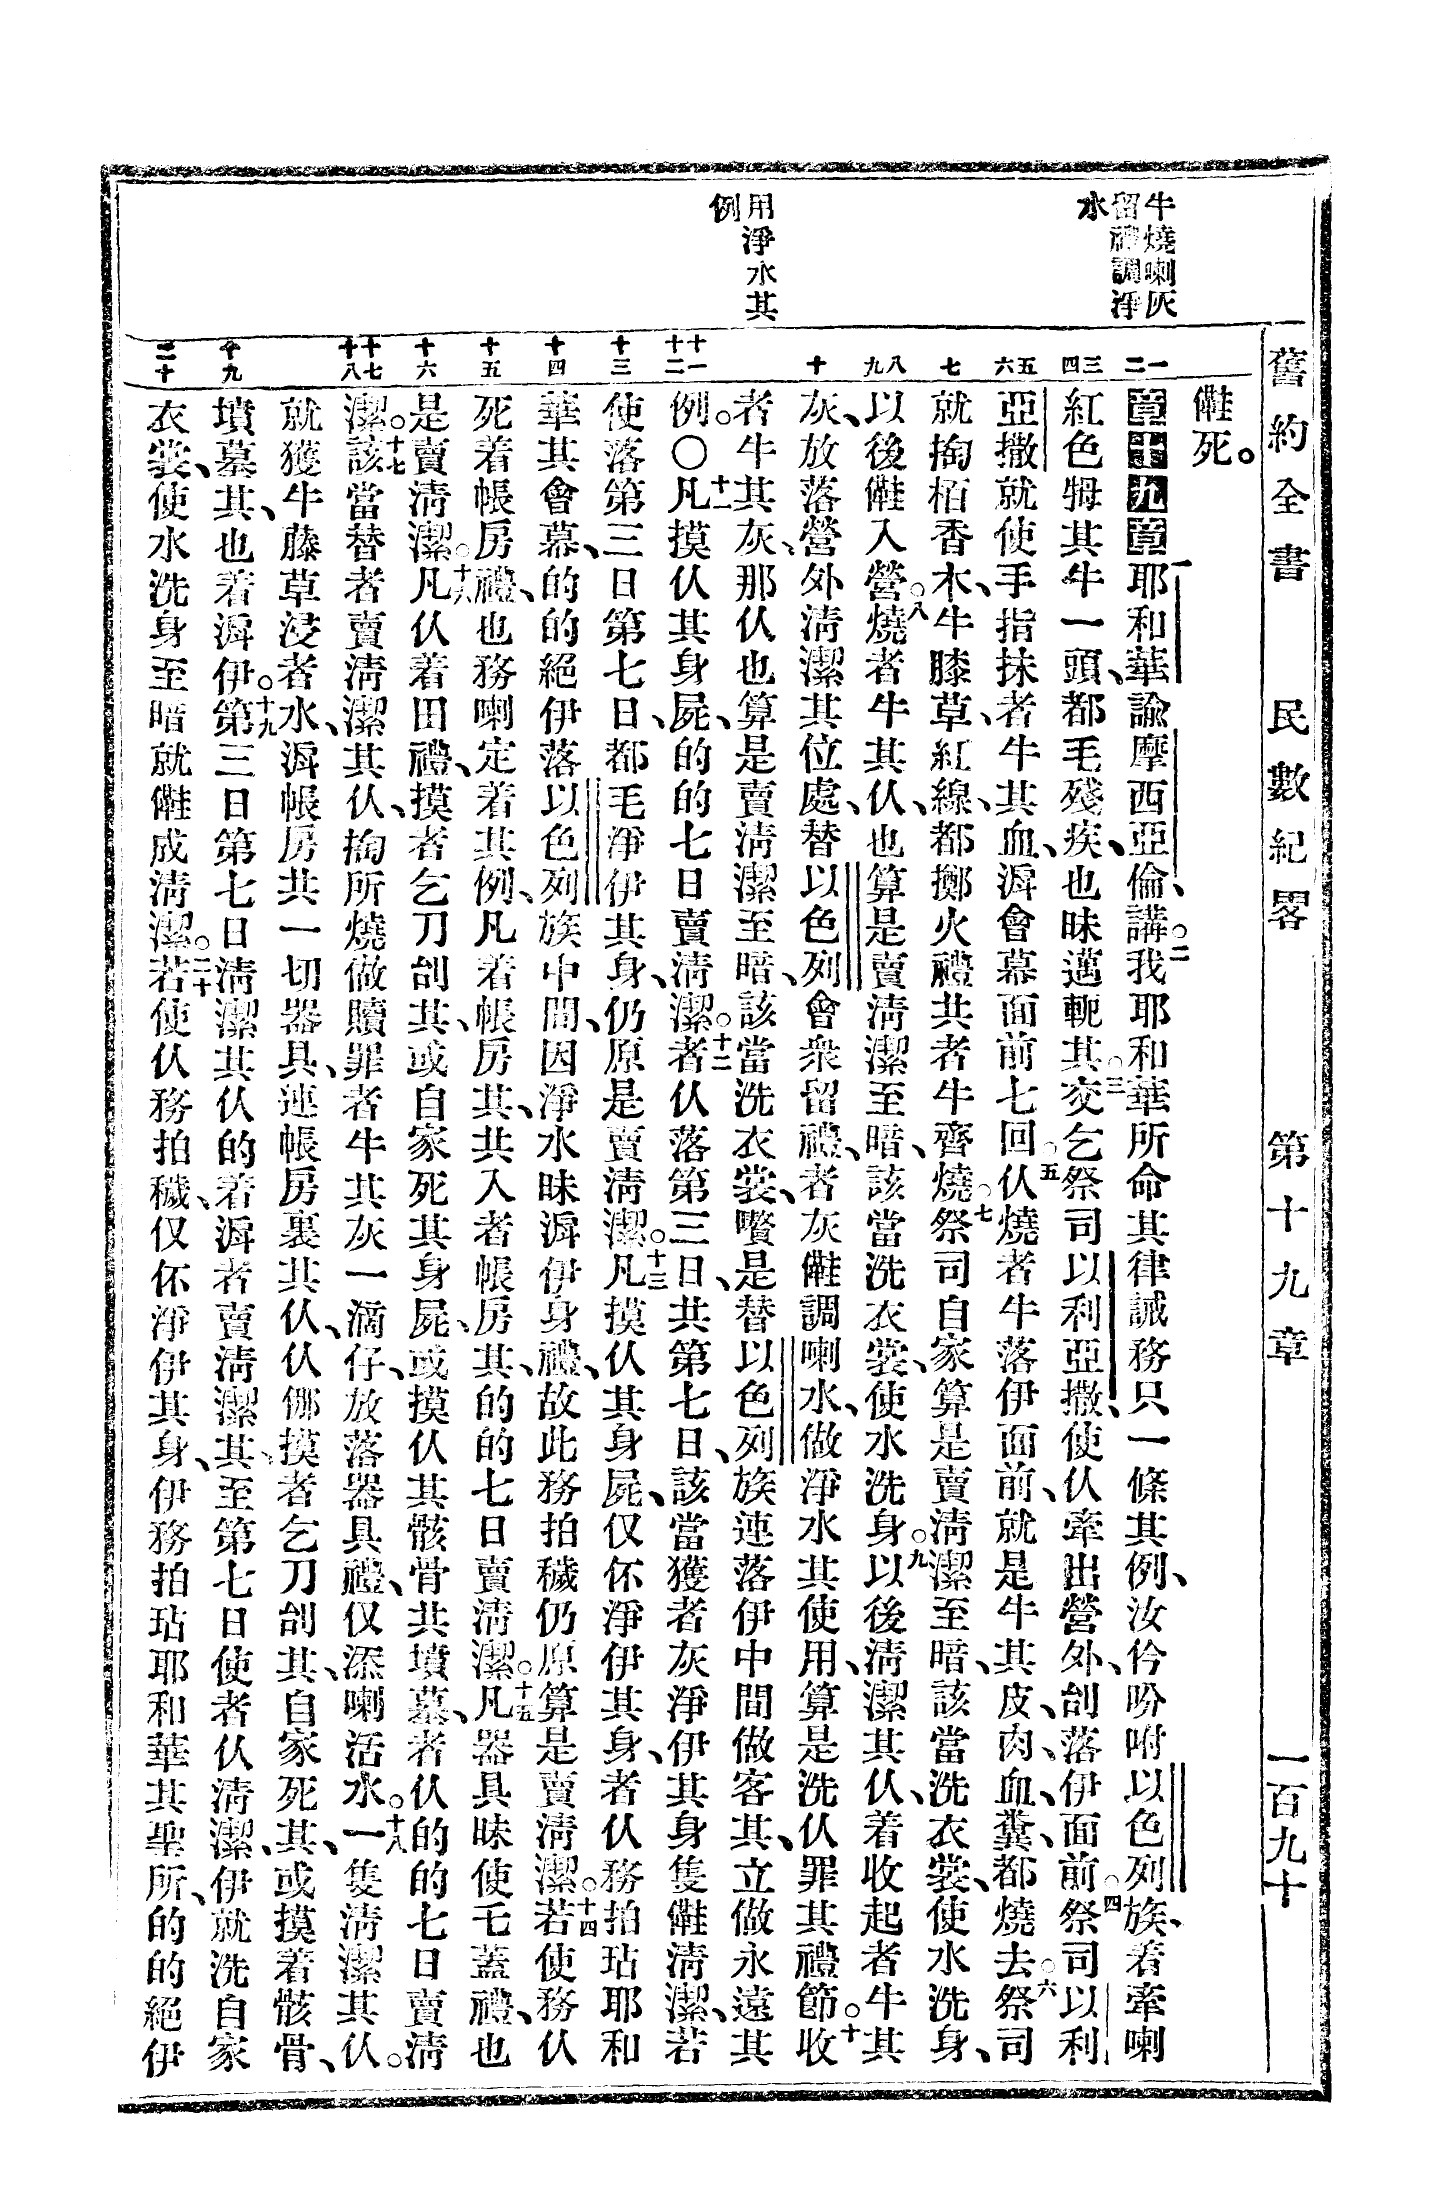 舊約全書 民數紀畧 第十九章 一百九十
牛燒喇灰
留禮調淨
水
用淨水其
例
一 二 三 四 五 六 七 八 九 十 十一 十二 十三 十四 十五 十六 十七 十八 十九 二十
㒰死。
章十九章耶和華諭摩西亞倫講、○二我耶和華所命其律誡務只一條其例、汝仱吩咐以色列族、着牽喇
紅色牳其牛一頭、都毛殘疾、也昧邁軛其、○三交乞祭司以利亞撒、使仈牽出營外、刣落伊面前、○四祭司以利
亞撒就使手指抹者牛其血、㴍會幕面前七回、○五仈燒者牛落伊面前、就是牛其皮、肉、血、糞、都燒去、○六祭司
就掏栢香木、牛膝草、紅線、都擲火禮共者牛齊燒、○七祭司自家算是賣淸潔至暗、該當洗衣裳、使水洗身、
以後㒰入營、○八燒者牛其仈、也算是賣淸潔至暗、該當洗衣裳、使水洗身、○九以後淸潔其仈、着收起者牛其
灰、放落營外淸潔其位處、替以色列會衆留禮、者灰㒰調喇水、做淨水其使用、算是洗仈罪其禮節。○十收
者牛其灰、那仈也算是賣淸潔至暗、該當洗衣裳、嚽是替以色列族連落伊中間做客其、立做永遠其
例。○十一凡摸仈其身屍、的的七日賣淸潔。○十二者仈落第三日、共第七日、該當獲者灰淨伊其身隻㒰淸潔、若
使落第三日第七日、都毛淨伊其身、仍原是賣淸潔。○十三凡摸仈其身屍、仅伓淨伊其身、者仈務拍玷耶和
華其會幕、的的絕伊落以色列族中間、因淨水昧㴍伊身禮、故此務拍穢仍原算是賣淸潔。○十四若使務仈
死着帳房禮、也務喇定着其例、凡着帳房其、共入者帳房其、的的七日賣淸潔。○十五凡器具昧使乇蓋禮、也
是賣淸潔。○十六凡仈着田禮、摸者乞刀刣其、或自家死其身屍、或摸仈其骸骨共墳墓、者仈的的七日賣淸
潔。○十七該當替者賣淸潔其仈、掏所燒做贖罪者牛其灰一滴仔、放落器具禮、仅添喇活水。○十八一隻淸潔其仈。
就獲牛藤草浸者水、㴍帳房共一切器具、連帳房裏其仈、仈㑚摸者乞刀刣其、自家死其、或摸着骸骨、
墳墓其、也着㴍伊。○十九第三日第七日淸潔其仈的着㴍者賣淸潔其、至第七日使者仈淸潔、伊就洗自家
衣裳、使水洗身至暗就㒰成淸潔。○二十若使仈務拍穢、仅伓淨伊其身、伊務拍玷耶和華其聖所、的的絕伊